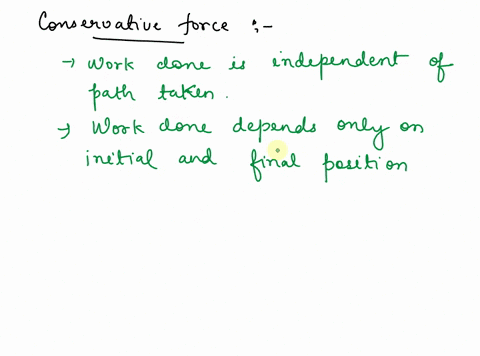 Conservative force :-
→ Work done is independent of
path taken.
→ Work done depends only on
initial and final position